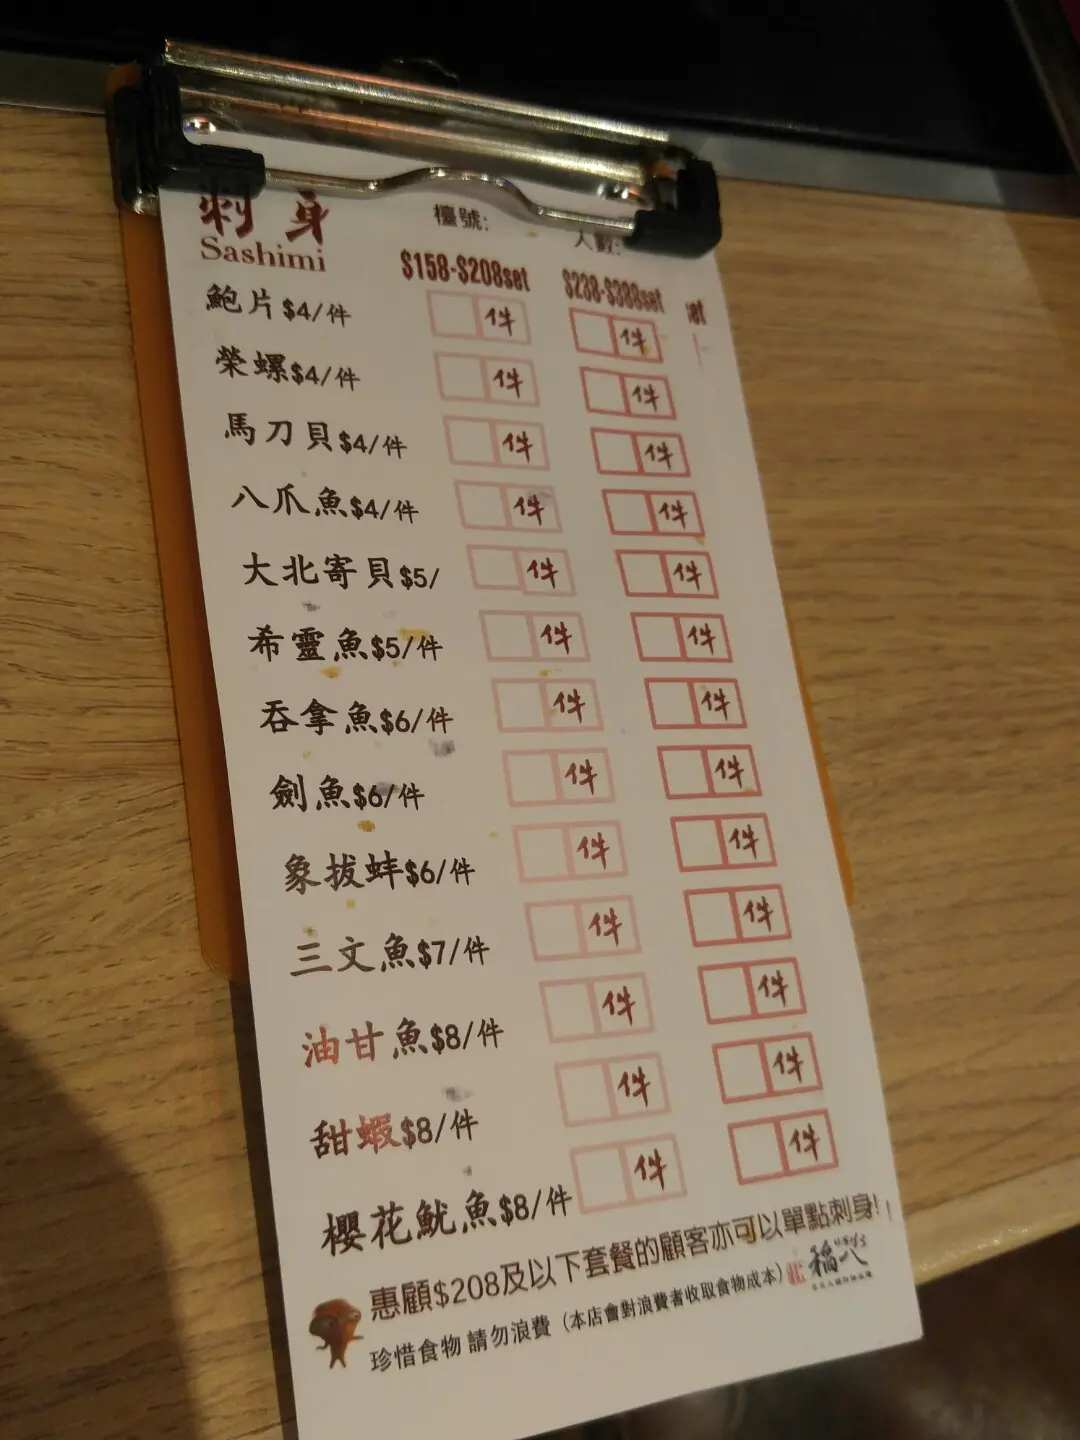 刺身 檯號: 人數:
Sashimi $158-$208set $238-$388set
鮑片$4/件 件 件
榮螺$4/件 件 件
馬刀貝$4/件 件 件
八爪魚$4/件 件 件
大北寄貝$5/ 件 件
希靈魚$5/件 件 件
吞拿魚$6/件 件 件
劍魚$6/件 件 件
象拔蚌$6/件 件 件
三文魚$7/件 件 件
油甘魚$8/件 件 件
甜蝦$8/件 件 件
櫻花魷魚$8/件 件 件
惠顧$208及以下套餐的顧客亦可以單點刺身!
珍惜食物 請勿浪費 (本店會對浪費者收取食物成本)
稲八